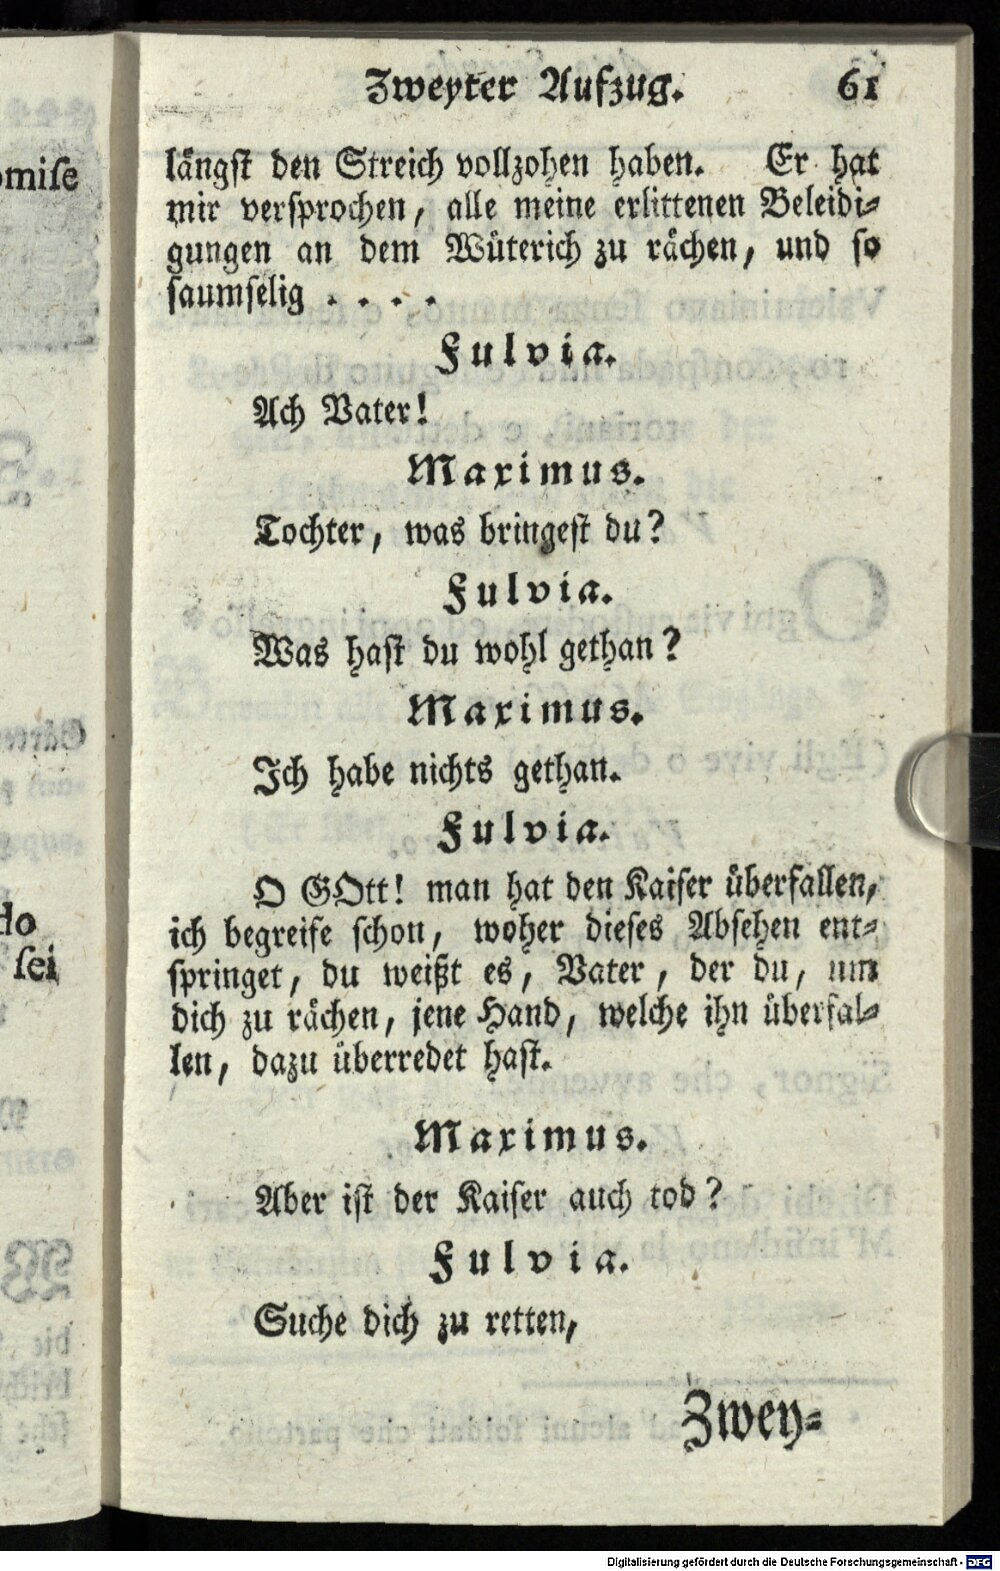 Zweyter Aufzug. 61
längst den Streich vollzohen haben. Er hat
mir versprochen, alle meine erlittenen Beleidi-
gungen an dem Wüterich zu rächen, und so
saumselig . . . .
Fulvia.
Ach Vater!
Maximus.
Tochter, was bringest du?
Fulvia.
Was hast du wohl gethan?
Maximus.
Ich habe nichts gethan.
Fulvia.
O GOtt! man hat den Kaiser überfallen,
ich begreife schon, woher dieses Absehen ent-
springet, du weißt es, Vater, der du, um
dich zu rächen, jene Hand, welche ihn überfal-
len, dazu überredet hast.
Maximus.
Aber ist der Kaiser auch tod?
Fulvia.
Suche dich zu retten,
Zwey-
Digitalisierung gefördert durch die Deutsche Forschungsgemeinschaft - DFG